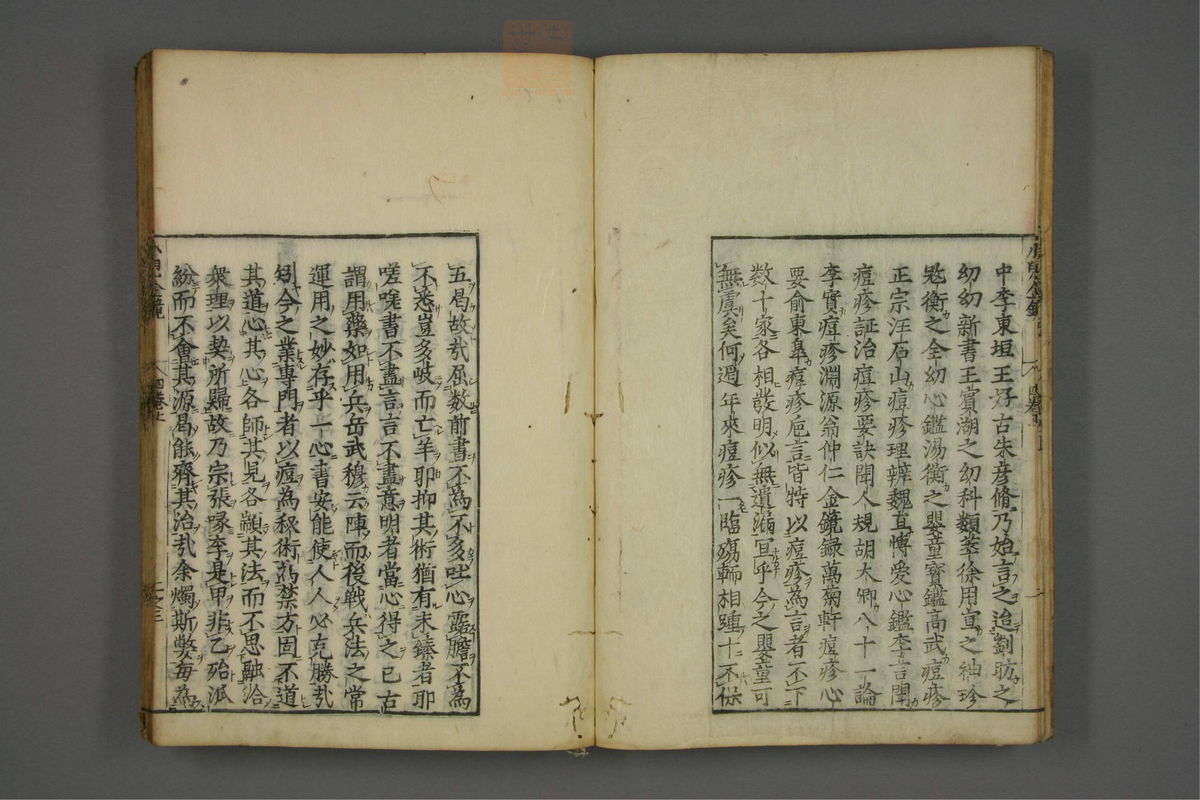 中李東垣王好古朱彦脩乃始言之迨劉昉之
幼幼新書王賓湖之幼科類萃徐用宣之袖珍
匙衡之全幼心鑑湯衡之嬰童寶鑑高武痘疹
正宗汪石山痘疹理辨魏直博愛心鑑李言聞
痘疹証治痘疹要訣聞人規胡大卿八十一論
李實痘疹淵源翁仲仁金鏡録萬菊軒痘疹心
要俞東皐痘疹巵言皆特以痘疹為言者不下
数十家各相發明似無遺漏冝乎今之嬰童可
無虞矣何邇年來痘疹一臨殤輀相踵十不保
五曷故㢤屈数前書不為不多吐心露膽不為
不悉豈多岐而亡羊耶抑其術猶有未臻者耶
嗟嗟書不盡言言不盡意明者當心得之已古
謂用藥如用兵岳武穆云陣而後戦兵法之常
運用之妙存乎一心書安能使人人必克勝㢤
矧今之業專門者以痘為秘術為禁方固不道
其道心其心各師其見各顓其法而不思融洽
衆理以契所歸故乃宗張喙李是甲非乙殆泒
紛而不會其源曷能齊其治㢤余燭斯弊毎為